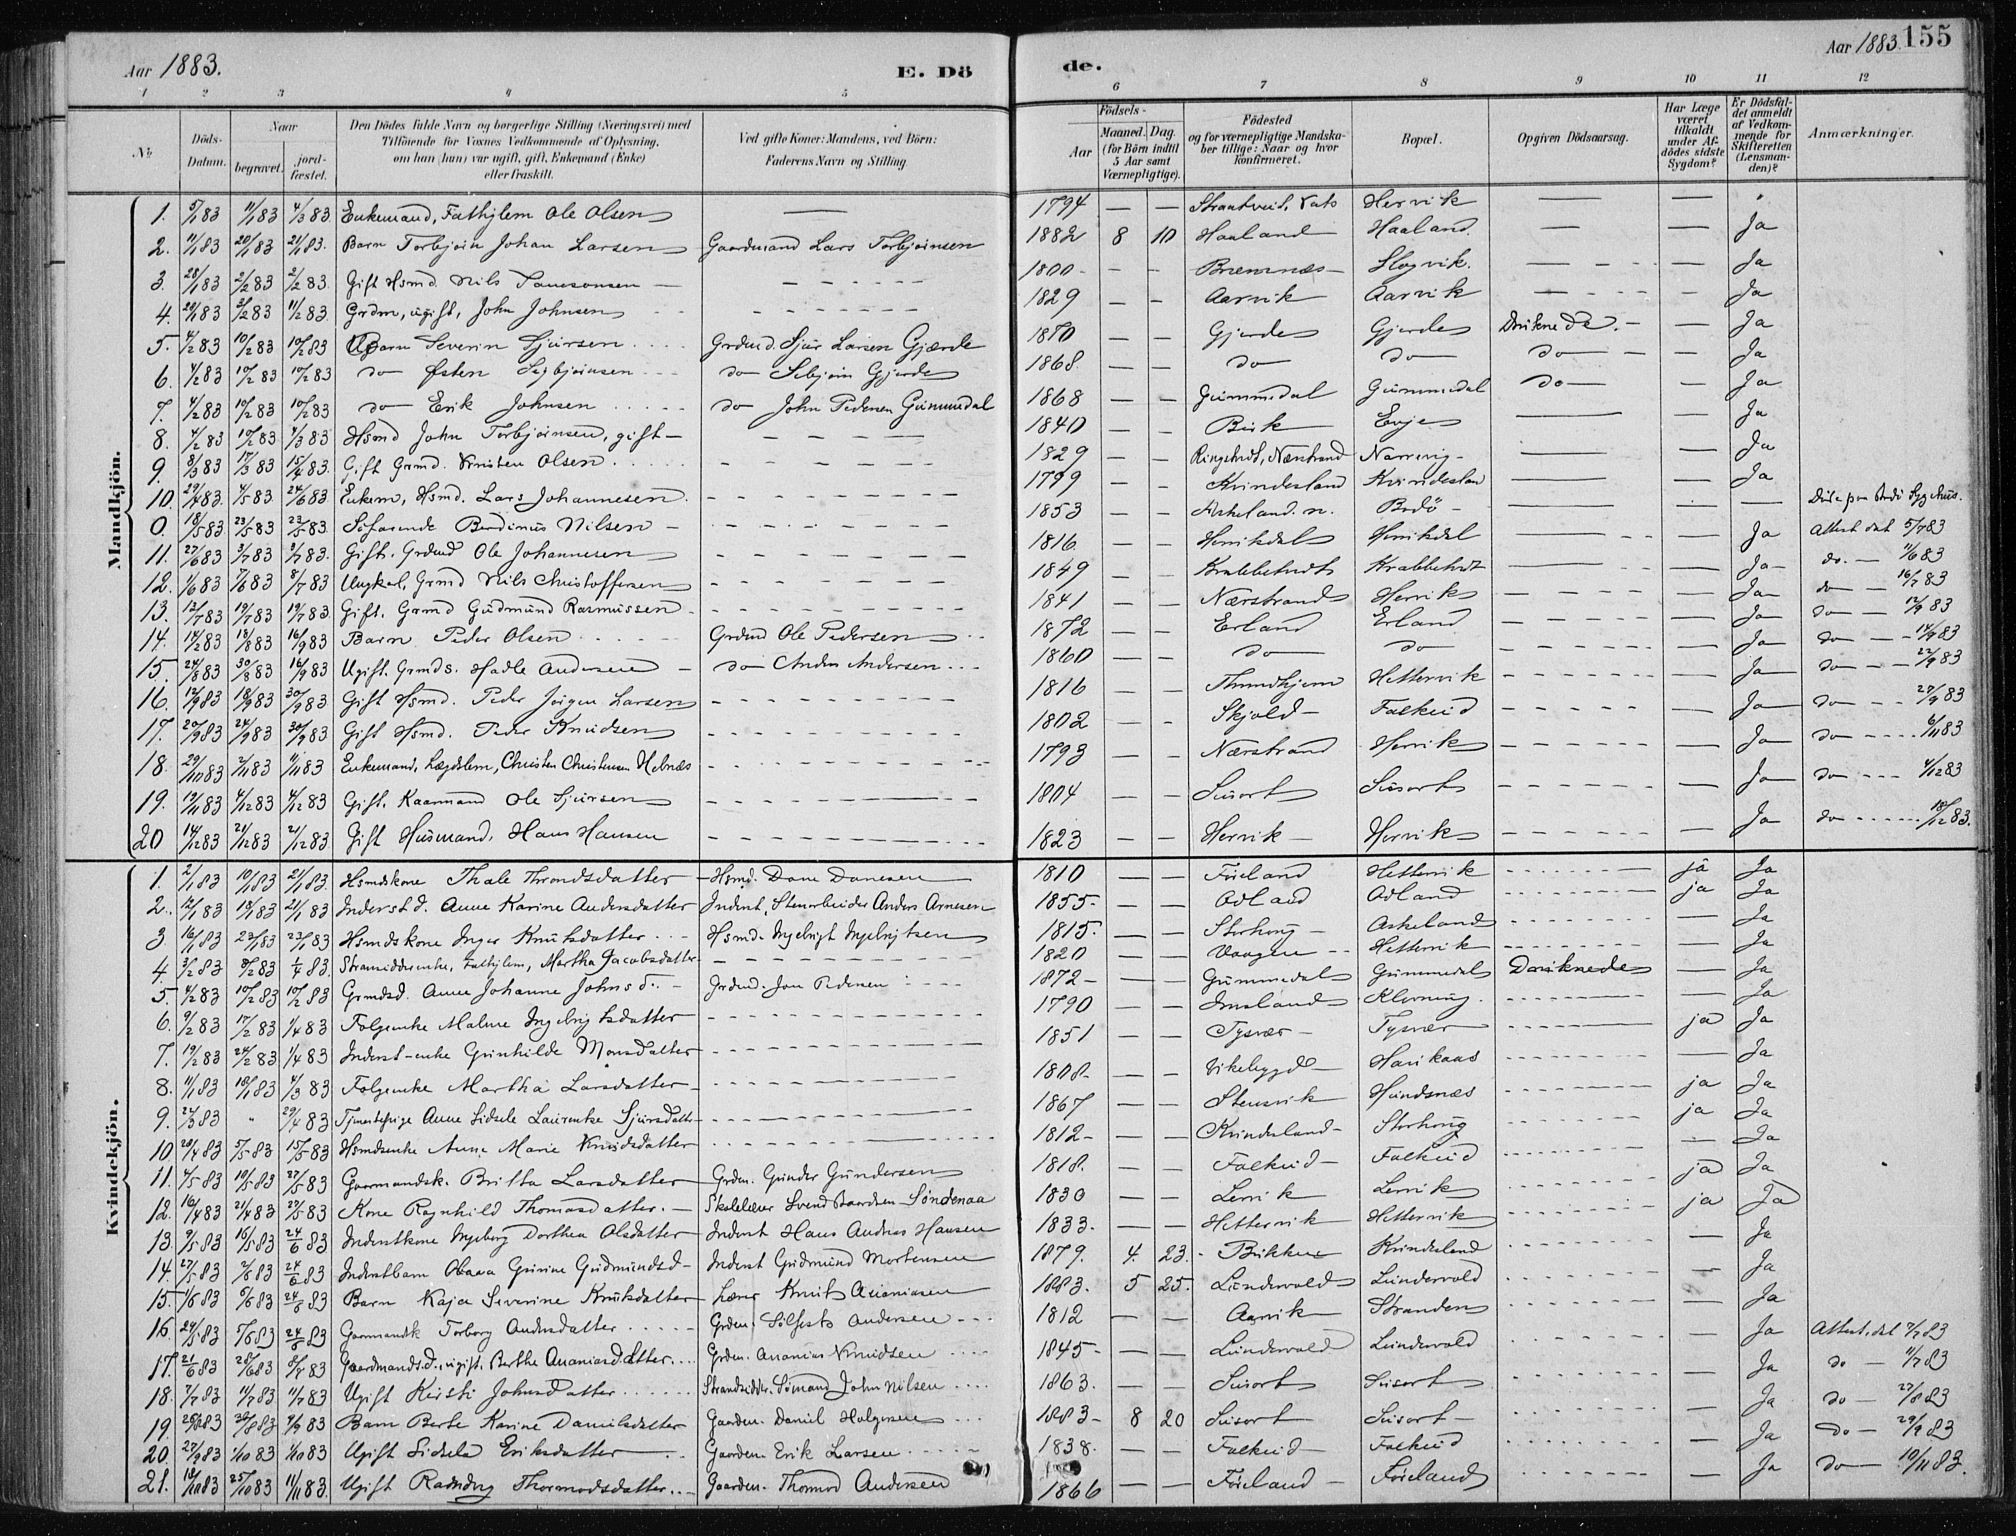 Aar 1883.
E. Döde.
Aar 1883. 155
1 2 3 4 5 6 7 8 9 10 11 12
No. Döds-Datum. Naar begravet. jord-fæstet. Den Dödes fulde Navn og borgerlige Stilling (Næringsvei) med Tilföiende for Voxnes Vedkommende af Oplysning, om han (hun) var ugift, gift, Enkemand (Enke) eller fraskilt. Ved gifte Koner: Mandens, ved Börn: Faderens Navn og Stilling. Födsels- Aar Maaned. Dag. (for Börn indtil 5 Aar samt Værnepligtige). Födested og for værnepligtige Mandskaber tillige: Naar og hvor konfirmeret. Bopæl. Opgiven Dödsaarsag. Har Læge været tilkaldt under Afdödes sidste Sygdom? Er Dödsfaldet anmeldt af Vedkommende for Skifteretten (Lensmanden)? Anmærkninger.
Mandkjön.
1. 5/1 83 11/1 83 4/3 83 Enkemand, Fathjlem Ole Olsen — 1794 — — Hervik — —
2. 11/1 83 20/1 83 21/1 83. Barn Torbjøin Johan Larsen Gaardmand Lars Torbjøinsen 1882 8 10 Haaland Haaland. — — Ja
3. 28/1 83 2/2 83 2/2 83 Gift Hsmd. Nils — 1800 - - Bremnæs Slogvik. — — Ja
4. 11/2 83 Grdm, ugift, John Johnsen 1829 — - Aarvik Aarvik — — Ja
5. 4/2 83 10/2 83 10/2 83 Barn Severin Sjursen Grdmd. Sjur Larsen Gjærde 1870 — — Gjerde Gjerde Druknede. — Ja
6. 4/2 83 10/2 83 10/2 83 do Østen Sebjøinsen do Sebjøin Gjerde 1868. — — do do do — Ja
7. 4/2 83 10/2 83 10/2 83 do Erik Johnsen do John Pedersen Gummedal 1868 — — Gummedal Gummedal do — Ja
8. 4/2 83 10/2 83 4/3 83 Hsmd John Torbjøinsen, gift — 1840 — — Birk Evje — — Ja
9. 8/3 83 17/3 83 15/4 83. Gift Grmd. Knisten Olsen. 1829 — — Nærstrand — — Ja
10. 29/4 83. 4/5 83 24/6 83 Enkem, Hsmd. Lars Johannesen. 1799 — — Kvindesland Kvindeslan — — Ja
0. 18/5 83 23/5 83 23/5 83. Søfarende Berdinus Nilsen — 1853 — — Askeland. Bodö — — — Sygehus.
11. 27/6 83 3/7 83 3/7 83. Gift. Grdmd Ole Johannesen 1816 — — Henriksdal Henriksdal — — Ja Attest dat 5/7 83
12. 1/6 83 7/6 83 8/7 83 Ungkal, Grmd Nils Christoffersen 1849 — — Krabbetveit — — Ja do. — 11/6 83
13. 12/7 83 19/7 83 19/7 83 Gift. Grmd Gudmund Rasmussen. 1841 — — Nærstrand Hervik — Ja do — 16/7 83
14. 18/8 83 16/9 83 Barn Peder Olsen Grdmd Ole Pedersen 1872 — — Erland Erland — Ja do — 12/9 83
15. 24/8 83 30/8 83 16/9 83 Ugift. Grmds. Hadle Andersen — do Anders Andersen 1860 — — do do — Ja do — 14/9 83
16. 12/9 83 18/9 83 30/9 83 Gift Hsmd. Peder Jörgen Larsen 1816 — — Hettervik — Ja do — 22/9 83
17. 20/9 83 24/9 83 30/9 83 Gift Hsmd. Peder Knudsen 1802 — - Skjold Falkeid — Ja do — 27/9 83
18. 29/10 83 2/11 83 11/11 83 Enkemand, Lægdslem, Christen Christensen Helnæs 1793 — — Nærstrand Hervik — Ja do 6/11 83
19. 19/11 83 4/12 83 4/12 83 Gift. Kaarmand Ole Sjursen 1804 — — Susort Susort — Ja do 4/12 83
20 14/12 83 21/12 83 21/12 83 Gift Husmand, Hans Hansen 1823 — — Hervik Hervik — Ja do 18/12 83.
Kvindekjön.
1. 2/1 83 10/1 83 21/1 83. Hsmdskone Thale Throndsdatter Hsmd. Dane Danesen 1810 — — Føreland Hettervik ja Ja
2. 12/1 83 18/1 83 21/1 83 Inderst d. Anne Karine Andersdatter Inderst, Stenarbeider Anders Arnesen 1855. — — Odland Odland ja Ja
3 16/1 83 23/1 83 23/1 83 Hsmdskone Inger Knutsdatter Hsmd. Ingebrigt Ingebrigtsen 1815. — — Storhoug Askeland — Ja
4. 3/2 83 8/2 83 1/4 83. Strandsidderenke, Fathjlem, Martha Jacobsdatter 1820 — — Hettervik — Ja
5. 4/2 83 10/2 83 10/2 83 Grmdsd. Anne Johanne Johnsd. Grdmd. Jon Pedersen 1872 — — Gummedal Gummedal Druknede — Ja
6. 9/2 83 17/2 83 1/4 83 Folgeenke Malene Ingebrigtsdatter 1790 — — Imsland Klovning. — Ja
7. 19/2 83 24/2 83 1/4 83 Inderst-enke Gunhilde Monsdatter 1851 — — Tysvær Tysvær ja Ja
8. 11/1 83 18/1 83 4/3 83 Folgeenke Martha Larsdatter 1808 — — Vikebygd — Ja
9. 24/3 83 " 29/4 83 Tjenestepige Anne Sidsele Laurentze Sjursdatter 1867 — — Stensvik Hundsnæs ja Ja
10. 28/4 83 5/5 83 15/5 83 Hsmdsenke Anne Marie Knudsdatter 1812 — — Kvindesland Storhoug ja Ja
11. 4/5 83 10/5 83 27/5 83 Gaarmandsk. Britha Larsdatter Grdm. Gunder Gundersen 1818. — — Falkeid Falkeid — Ja
12. 16/4 83 21/4 83 27/5 83 Kone Ragnhild Thomasdatter. Skolelærer Svend Baardsen Söndenaa 1830 — — Lervik Lervik ja Ja
13. 9/5 83 16/5 83 24/6 83 Inderstkone Ingeborg Dorthea Olsdatter Inderst Hans Andreas Hansen 1833. — — Hettervik Hettervik ja Ja
14. 27/5 83 2/6 83 24/6 83 Inderstbarn Gurine Gudmundsd. Inderst Gudmund Mortensen 1879. 4. 23. Bukken Kvindesland Ja
15. 1/6 83 6/6 83 24/6 83 Barn Kaja Severine Knutsdatter Lærer Knut Ananiasen 1883. 5 25. Lundervold Lundervold Ja
16. 24/5 83 7/6 83 24/6 83 Gaarmandk Torborg Andersdatter Grdm. Sölfest Andersen 1812 — — Aarvik Stranden Ja
17. 21/6 83 28/6 83 8/7 83 Gaardmandsd., ugift. Berthe Ananiasdatter Grdm. Ananias Knudsen 1845 — — Lundervold Lundervold Ja Attest. dat 2/7 83
18. 7/7 83 11/7 83 11/7 83 Ugift Kirsti Johnsdatter Strandsidder. Sömand John Nilsen 1863. — — Susort Susort — Ja do — 11/7 83
19. 28/8 83 2/9 83 Barn Berte Karine Danielsdatter Gaardm. Daniel Holgersen 1883 8 20 Susort Susort — Ja do — 27/8 83
20. 27/9 83 1/10 83 1/10 83 Ugift Sidsela Eriksdatter Gaardm. Erik Larsen 1838. — — Falkeid Falkeid — Ja do — 29/9 83
21. 18/10 83 25/10 83 11/11 83. Ugift Thormodsdatter Gaardm. Thormod Andersen 1866 — — Føreland Føreland — Ja do — 10/11 83.